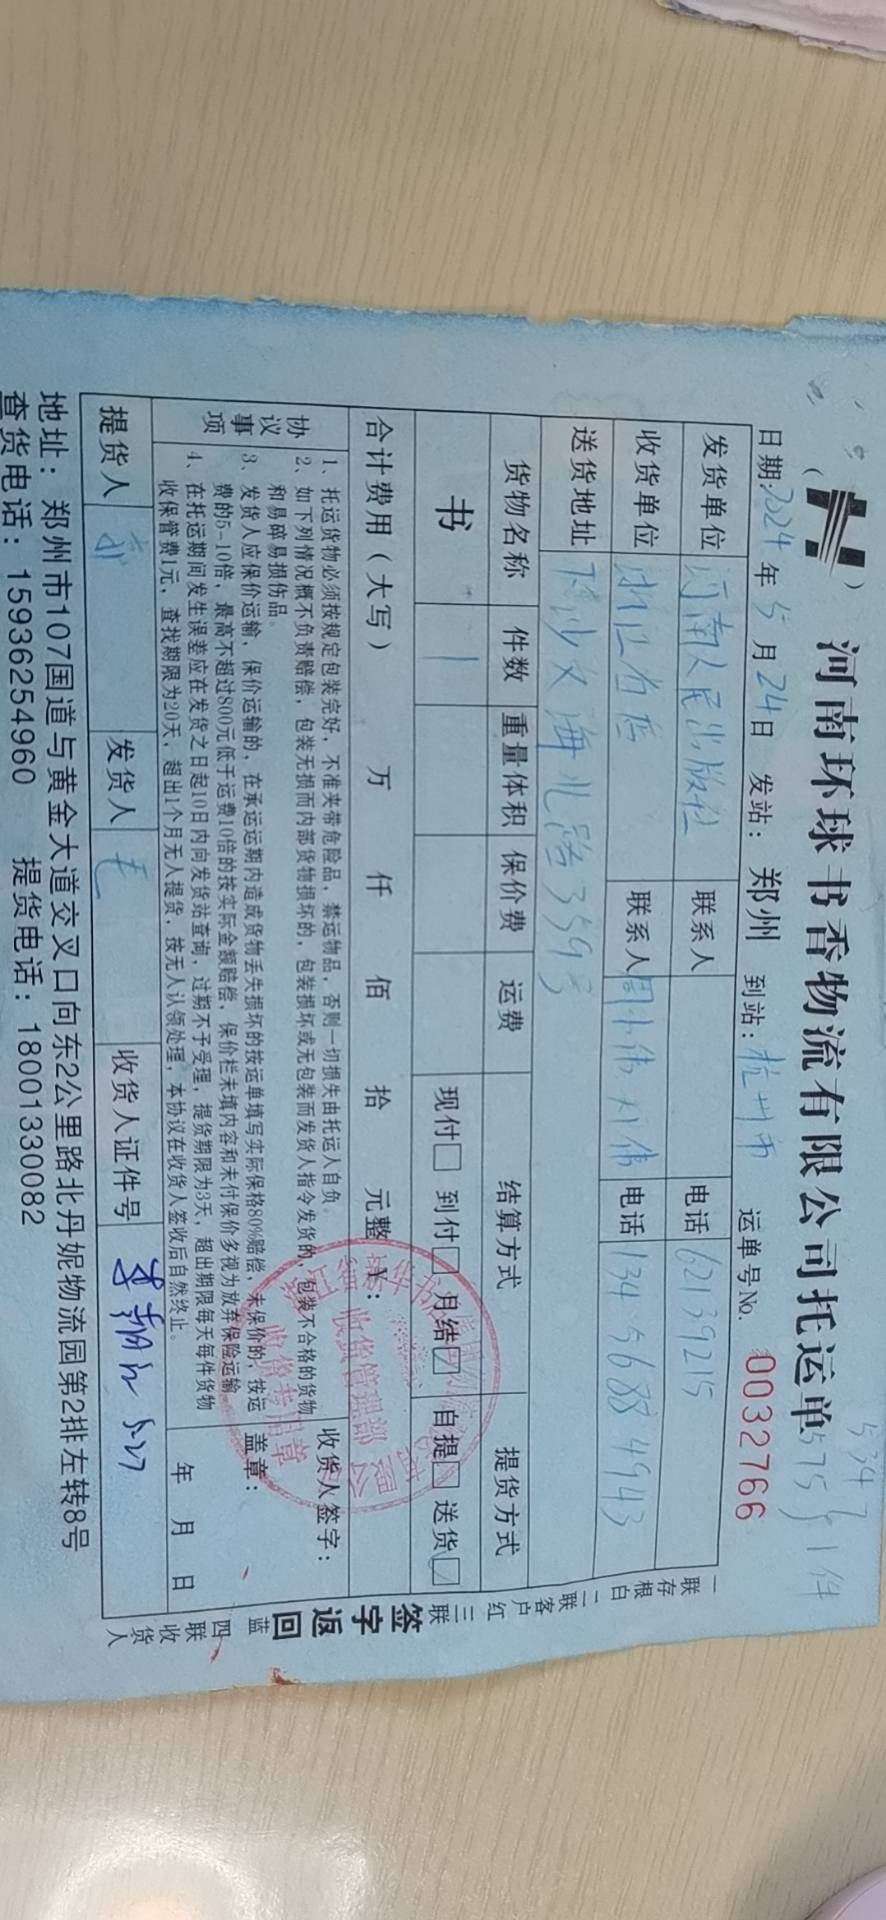 河南环球书香物流有限公司托运单
5347
575 } 1件
日期:2024年5月24日 发站: 郑州 到站: 杭州市 运单号No. 0032766
发货单位 河南人民出版社 联系人 电话 62139215
收货单位 浙江省店 联系人 电话 134 5688 4943
送货地址 下沙文海北路359号
货物名称 件数 重量体积 保价费 运费 结算方式 提货方式
书 1 现付□ 到付□ 月结☑ 自提□ 送货☑
合计费用(大写) 万 仟 佰 拾 元整 ¥:
协议事项
1、托运货物必须按规定包装完好,不准夹带危险品,禁运物品,否则一切损失由托运人自负。
2、如下列情况概不负责赔偿,包装无损而内部货物损坏的,包装损坏或无包装而发货人指令发货的,包装不合格的货物
和易碎易损伤品。
3、发货人应保价运输,保价运输的,在承运运期内造成货物丢失损坏的按运单填写实际保格80%赔偿,未保价的,按运
费的5-10倍,最高不超过800元低于运费10倍的按实际金额赔偿,保价栏未填内容和未付保价多视为放弃保险运输
4、在托运期间发生误差应在发货之日起10日内向发货站查询,过期不予受理,提货期限为3天,超出期限每天每件货物
收保管费1元,查找期限为20天,超出1个月无人提货,按无人认领处理,本协议在收货人签收后自然终止。
收货人签字:
盖章:
年 月 日
收货管理部
收货专用章
提货人 发货人 收货人证件号 5.27
地址: 郑州市107国道与黄金大道交叉口向东2公里路北丹妮物流园第2排左转8号
查货电话: 15936254960 提货电话: 18001330082
一联存根白 二联客户红 三联签字返回蓝 四联收货人